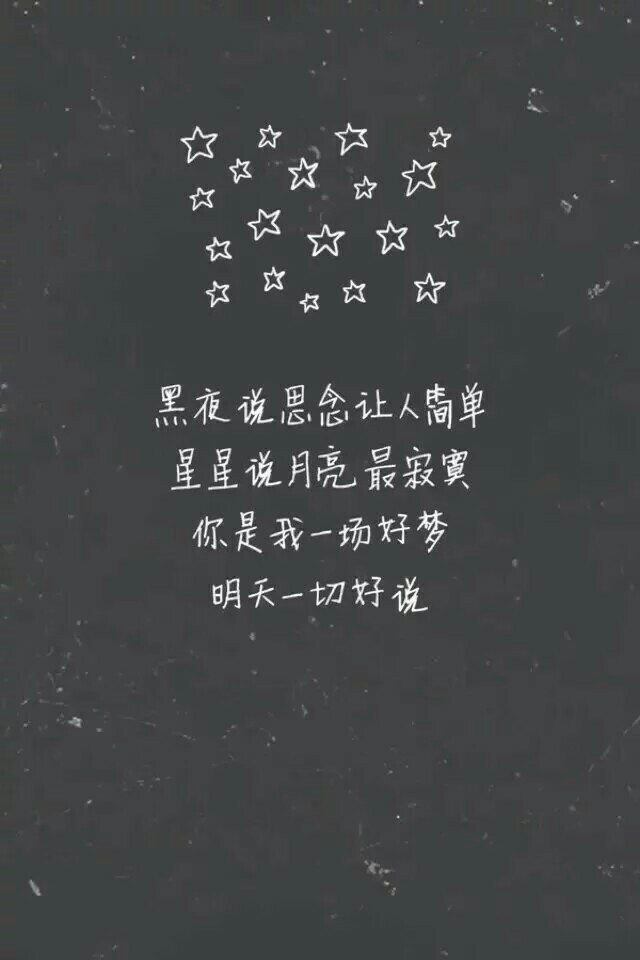 黑夜说思念让人简单
星星说月亮最寂寞
你是我一场好梦
明天一切好说